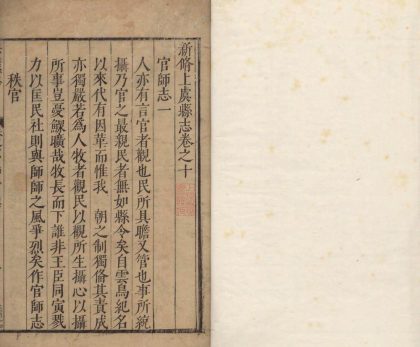 新修上虞縣志卷之十
官師志一
人亦有言官者觀也民所具瞻又管也事所統
攝乃官之最親民者無如縣令矣自雲鳥紀名
以來代有因革而惟我　朝之制獨備其責成
亦獨嚴若為人牧者觀民以觀所生攝心以攝
所事豈憂鰥曠哉牧長而下誰非王臣同寅戮
力以匡民社則與師師之風爭烈矣作官師志
秩官